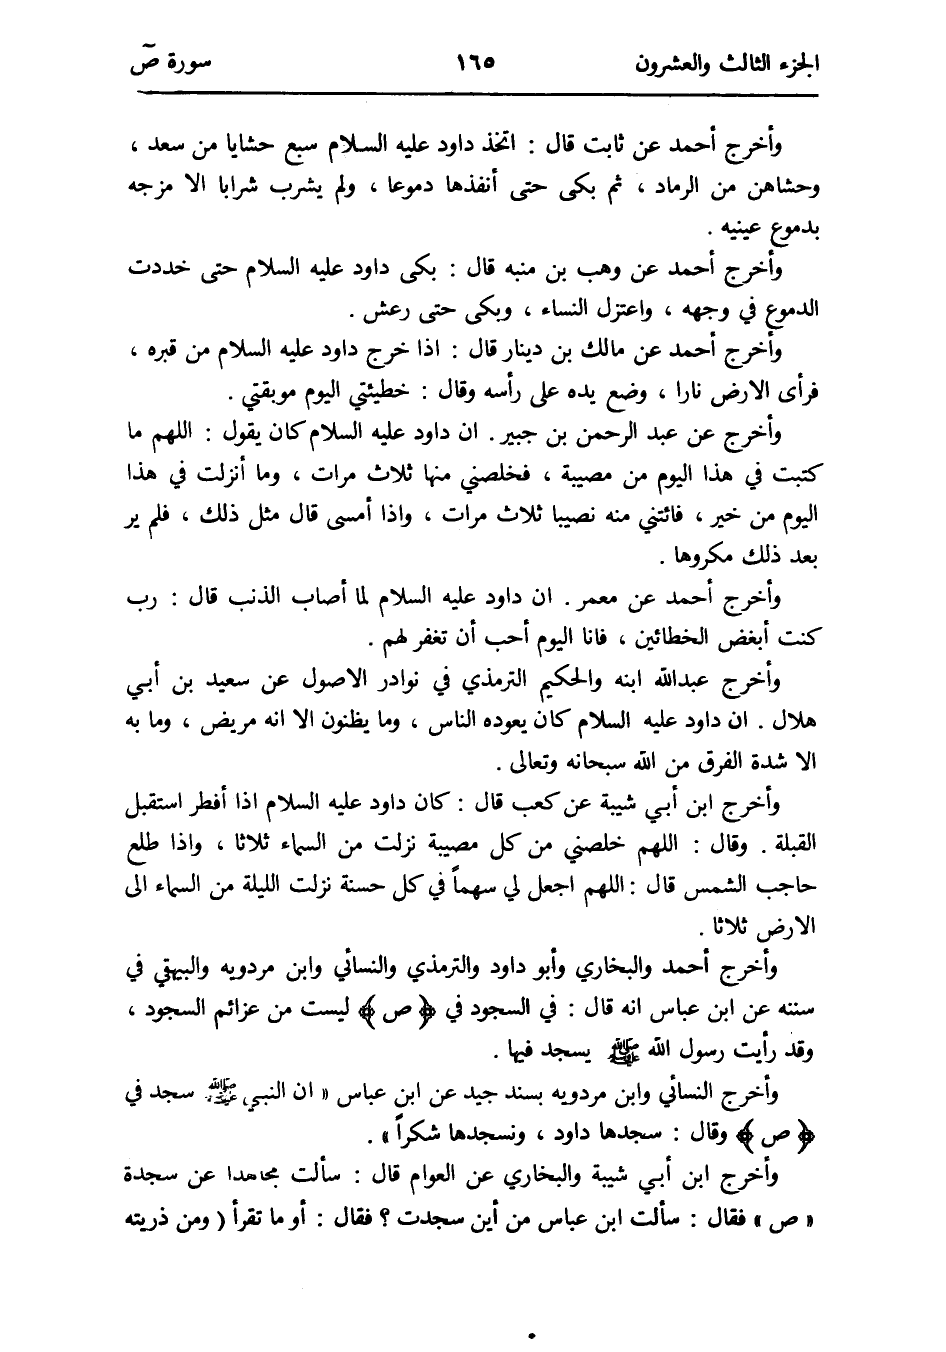 الجزء الثالث والعشرون ١٦٥ سورة صٓ
وأخرج أحمد عن ثابت قال : اتخذ داود عليه السلام سبع حشايا من سعد ،
وحشاهن من الرماد ، ثم بكى حتى أنفذها دموعا ، ولم يشرب شرابا الا مزجه
بدموع عينيه .
وأخرج أحمد عن وهب بن منبه قال : بكى داود عليه السلام حتى خددت
الدموع في وجهه ، واعتزل النساء ، وبكى حتى رعش .
وأخرج أحمد عن مالك بن دينار قال : اذا خرج داود عليه السلام من قبره ،
فرأى الارض نارا ، وضع يده على رأسه وقال : خطيئتي اليوم موبقتي .
وأخرج عن عبد الرحمن بن جبير . ان داود عليه السلام كان يقول : اللهم ما
كتبت في هذا اليوم من مصيبة ، فخلصني منها ثلاث مرات ، وما أنزلت في هذا
اليوم من خير ، فائتني منه نصيبا ثلاث مرات ، واذا أمسى قال مثل ذلك ، فلم ير
بعد ذلك مكروها .
وأخرج أحمد عن معمر . ان داود عليه السلام لما أصاب الذنب قال : رب
كنت أبغض الخطائين ، فانا اليوم أحب أن تغفر لهم .
وأخرج عبدالله ابنه والحكيم الترمذي في نوادر الاصول عن سعيد بن أبي
هلال . ان داود عليه السلام كان يعوده الناس ، وما يظنون الا انه مريض ، وما به
الا شدة الفرق من الله سبحانه وتعالى .
وأخرج ابن أبي شيبة عن كعب قال : كان داود عليه السلام اذا أفطر استقبل
القبلة . وقال : اللهم خلصني من كل مصيبة نزلت من السماء ثلاثا ، واذا طلع
حاجب الشمس قال : اللهم اجعل لي سهماً في كل حسنة نزلت الليلة من السماء الى
الارض ثلاثا .
وأخرج أحمد والبخاري وأبو داود والترمذي والنسائي وابن مردويه والبيهقي في
سننه عن ابن عباس انه قال : في السجود في ﴿ ص ﴾ ليست من عزائم السجود ،
وقد رأيت رسول الله ﷺ يسجد فيها .
وأخرج النسائي وابن مردويه بسند جيد عن ابن عباس « ان النبي ﷺ سجد في
﴿ ص ﴾ وقال : سجدها داود ، ونسجدها شكراً » .
وأخرج ابن أبي شيبة والبخاري عن العوام قال : سألت مجاهدا عن سجدة
« ص » فقال : سألت ابن عباس من أين سجدت ؟ فقال : أو ما تقرأ ( ومن ذريته